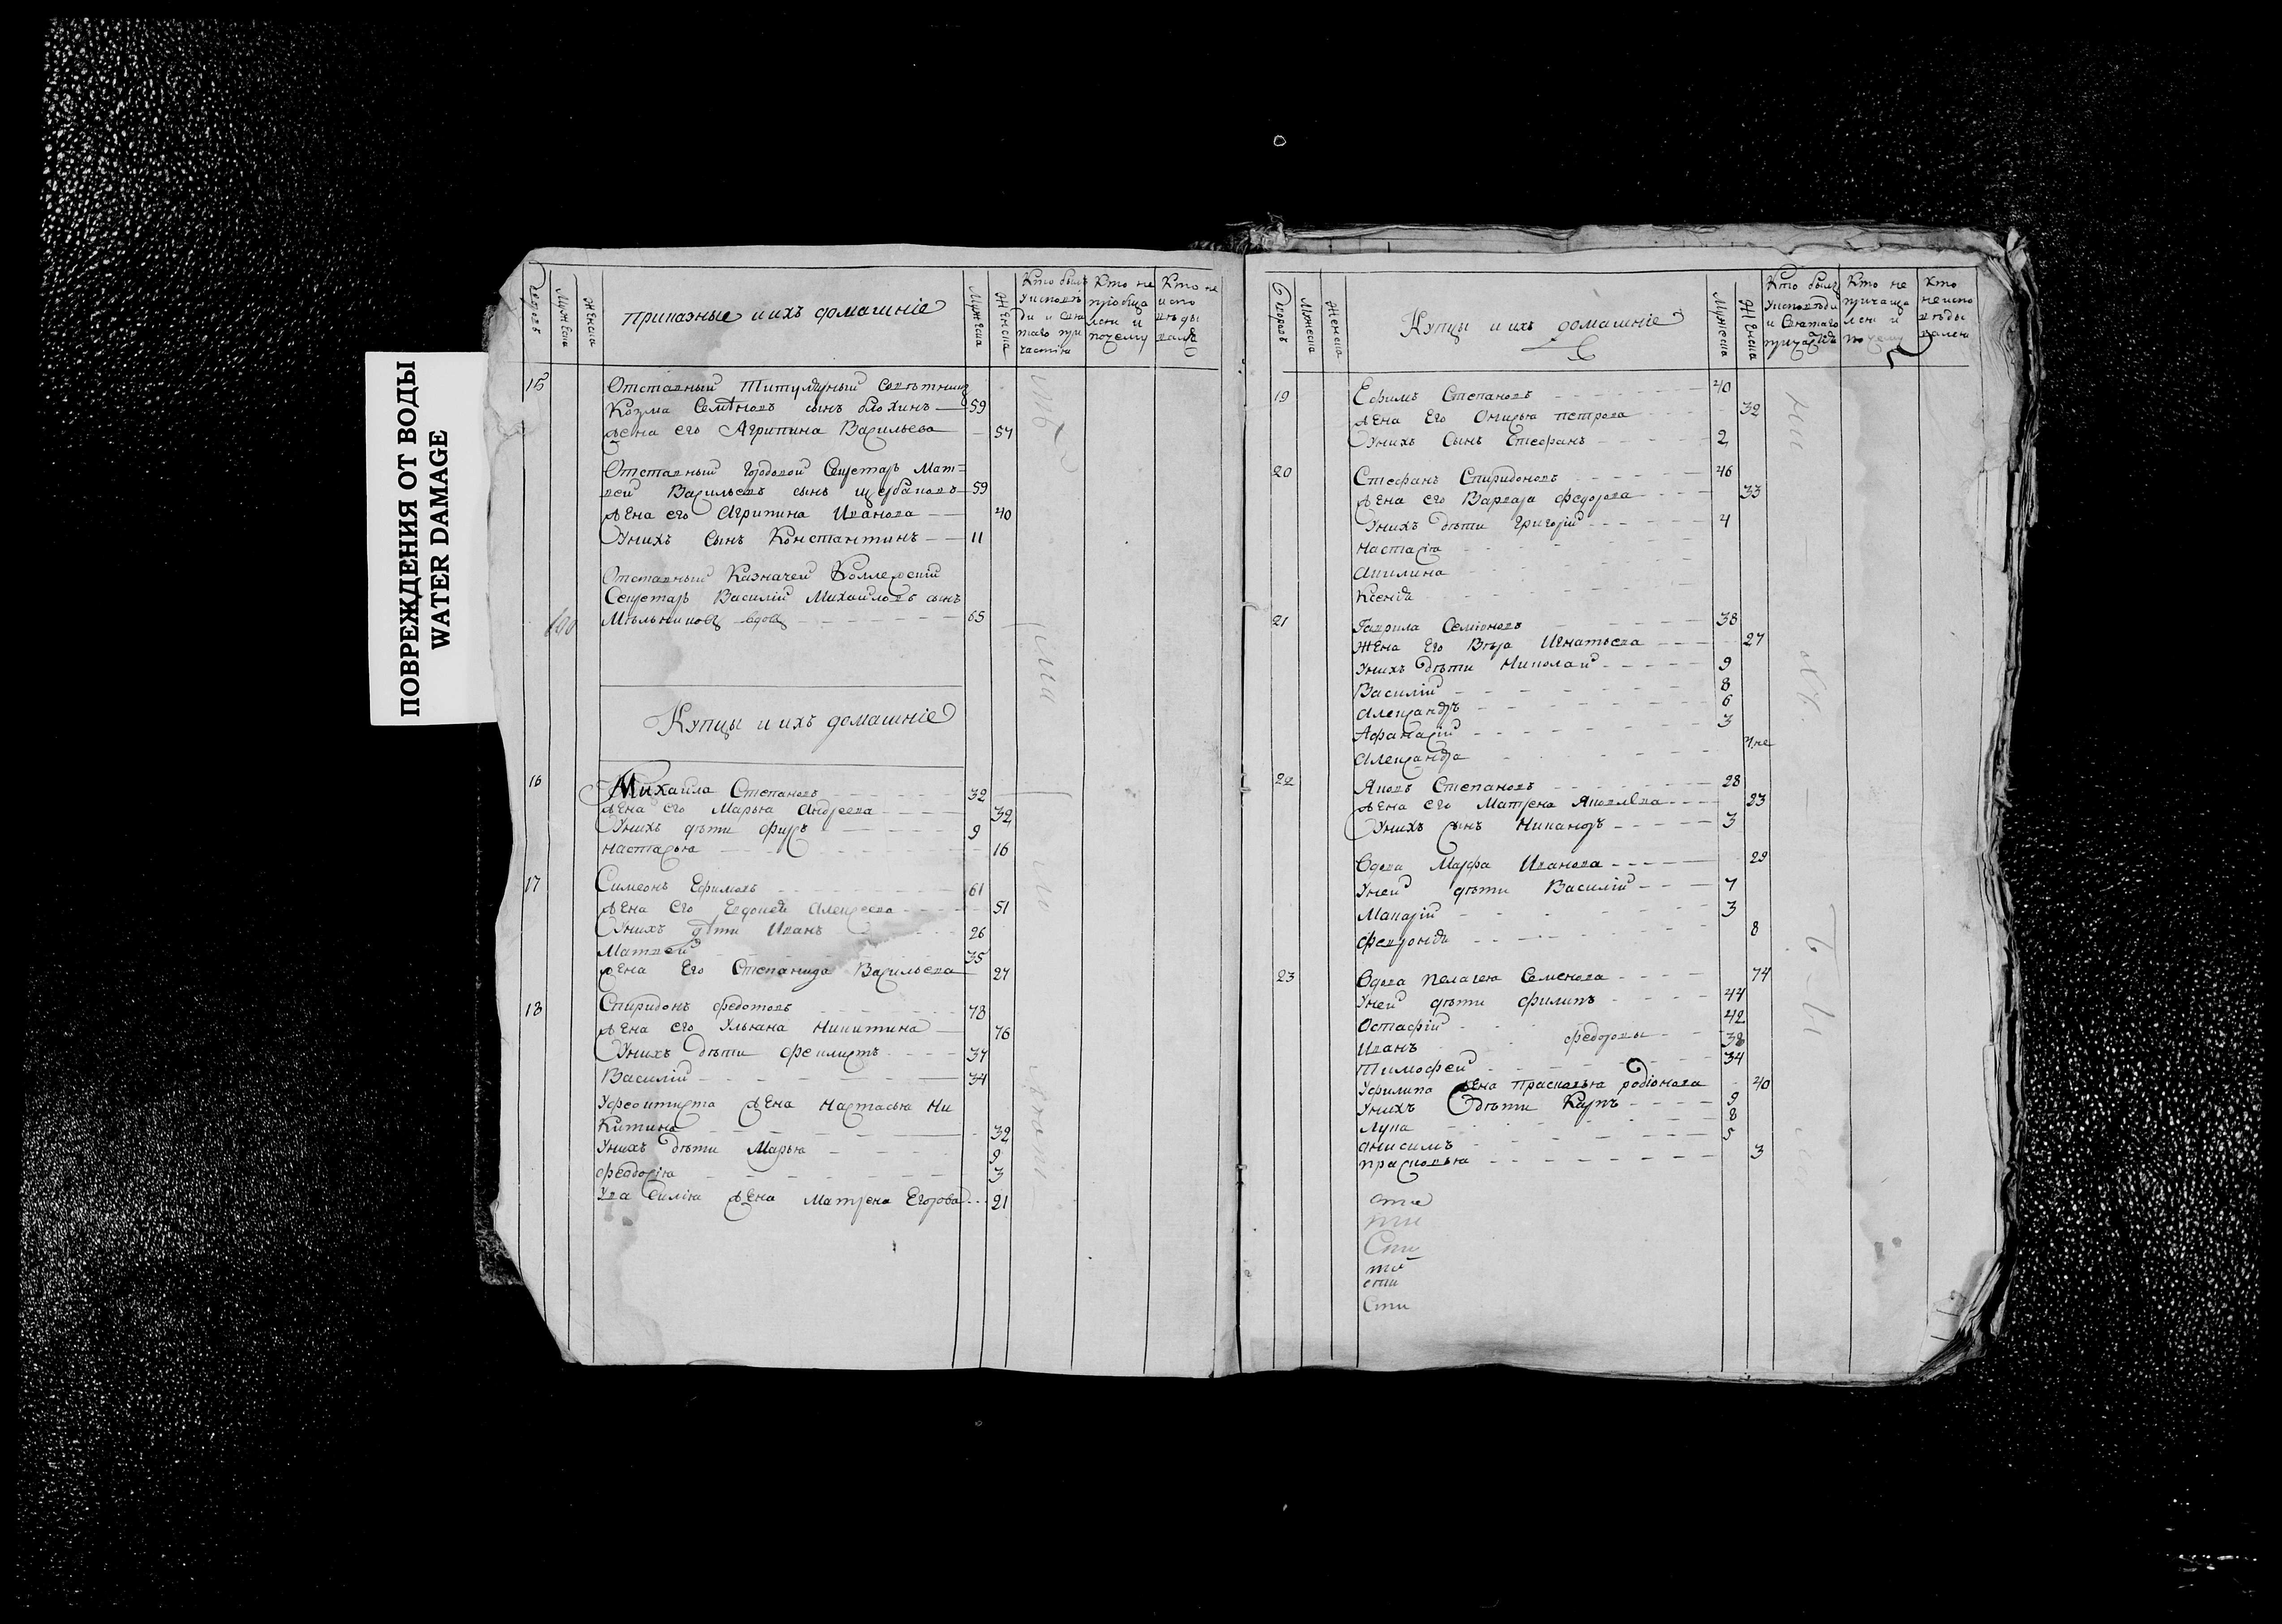 ПОВРЕЖДЕНИЯ ОТ ВОДЫ
WATER DAMAGE
Мужеска
Женска
приказные и ихъ домашніе
Мужеска
Женска
Кто былъ
Кто не
Кто не
15
Отставный титулярный советникъ
Козма Семёновъ сынъ блохинъ 59
жена его Агрипина Васильева 57
Отставный городовой Секретарь Мат=
вей Васильевъ сынъ щербаковъ 59
жена его Агрипина Иванова 40
Унихъ сынъ Константинъ 11
Отставный Казначей Коллежскій
Секретарь Василій Михайловъ сынъ
вдовъ 65
Купцы и ихъ домашніе
16 Михаила Степановъ 32
жена его Марья Андреева 32
Унихъ дѣти фирсъ 9
настасья 16
17 Симеонъ Ефимовъ 61
жена его Евдокея Алексеева 51
Унихъ дѣти Иванъ 26
Матвей 35
жена Его Степанида Васильева 27
18 Спиридонъ федотовъ 78
жена его Ульяна Никитина 76
Унихъ дѣти 37
Василій 34
жена Настасья Ни
китина 32
Унихъ дѣти Марья 9
феодосія 3
Увасилія жена Матрена Егорова 21
Мужеска
Женска
Купцы и ихъ домашніе
Мужеска
Женска
Кто былъ
уисповѣди
и Святаго
Кто не
причаща
лся и
почему
Кто
не испо
вѣды
вался
19 Ефимъ Степановъ 40
жена Его петрова 32
Унихъ Сынъ Стефанъ 2
20 Стефанъ Спиридоновъ 46
жена его Варвара федорова 33
Унихъ дѣти Григорій 4
Настасія
Акилина
Ксенія
21 Гаврила Семіоновъ 38
Жена Его Вѣра Игнатьева 27
Унихъ дѣти Николай 9
Василій 8
Александръ 6
Афанасій 3
Александра
22 Яковъ Степановъ 28
жена его Матрена Яковлева 23
Унихъ сынъ Никандръ 3
Вдова Марфа Иванова 29
Уней дѣти Василій 7
Макарій 3
февронія 8
23 Вдова пелагея Семенова 74
Уней дѣти филипъ 44
Остафій 42
Иванъ федоровы 38
Тимофей 34
Уфилипа жена прасковья родіонова 40
Унихъ дѣти Карпъ 9
Лука 8
анисимъ 5
прасковья 3